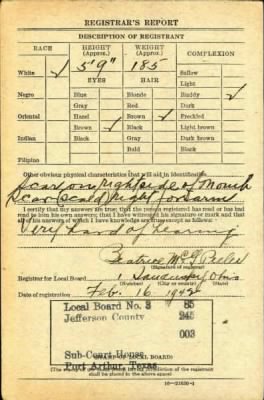 REGISTRAR'S REPORT
DESCRIPTION OF REGISTRANT
RACE
HEIGHT
(Approx.)
WEIGHT
(Approx.)
COMPLEXION
White ✓
5'9"
185
Sallow
Light
EYES
HAIR
Ruddy ✓
Negro
Blue
Blonde
Dark
Gray
Red
Freckled
Oriental
Hazel
Brown ✓
Light brown
Brown ✓
Black
Dark brown
Indian
Black
Gray
Black
Bald
Filipino
Other obvious physical characteristics that will aid in identification
Scar on right side of Mouth
Scar (scald) Right forearm
I certify that my answers are true; that the person registered has read or has had
read to him his own answers; that I have witnessed his signature or mark and that
all of his answers of which I have knowledge are true, except as follows:
Very hard of hearing
Beatrice
(Signature of registrar)
Registrar for Local Board 1 Sandusky Ohio
(Number) (City or county) (State)
Date of registration Feb. 16 1942
Local Board No. 3 85
Jefferson County 245
003
Sub-Court House
Port Arthur, Texas
(STAMP OF LOCAL BOARD)